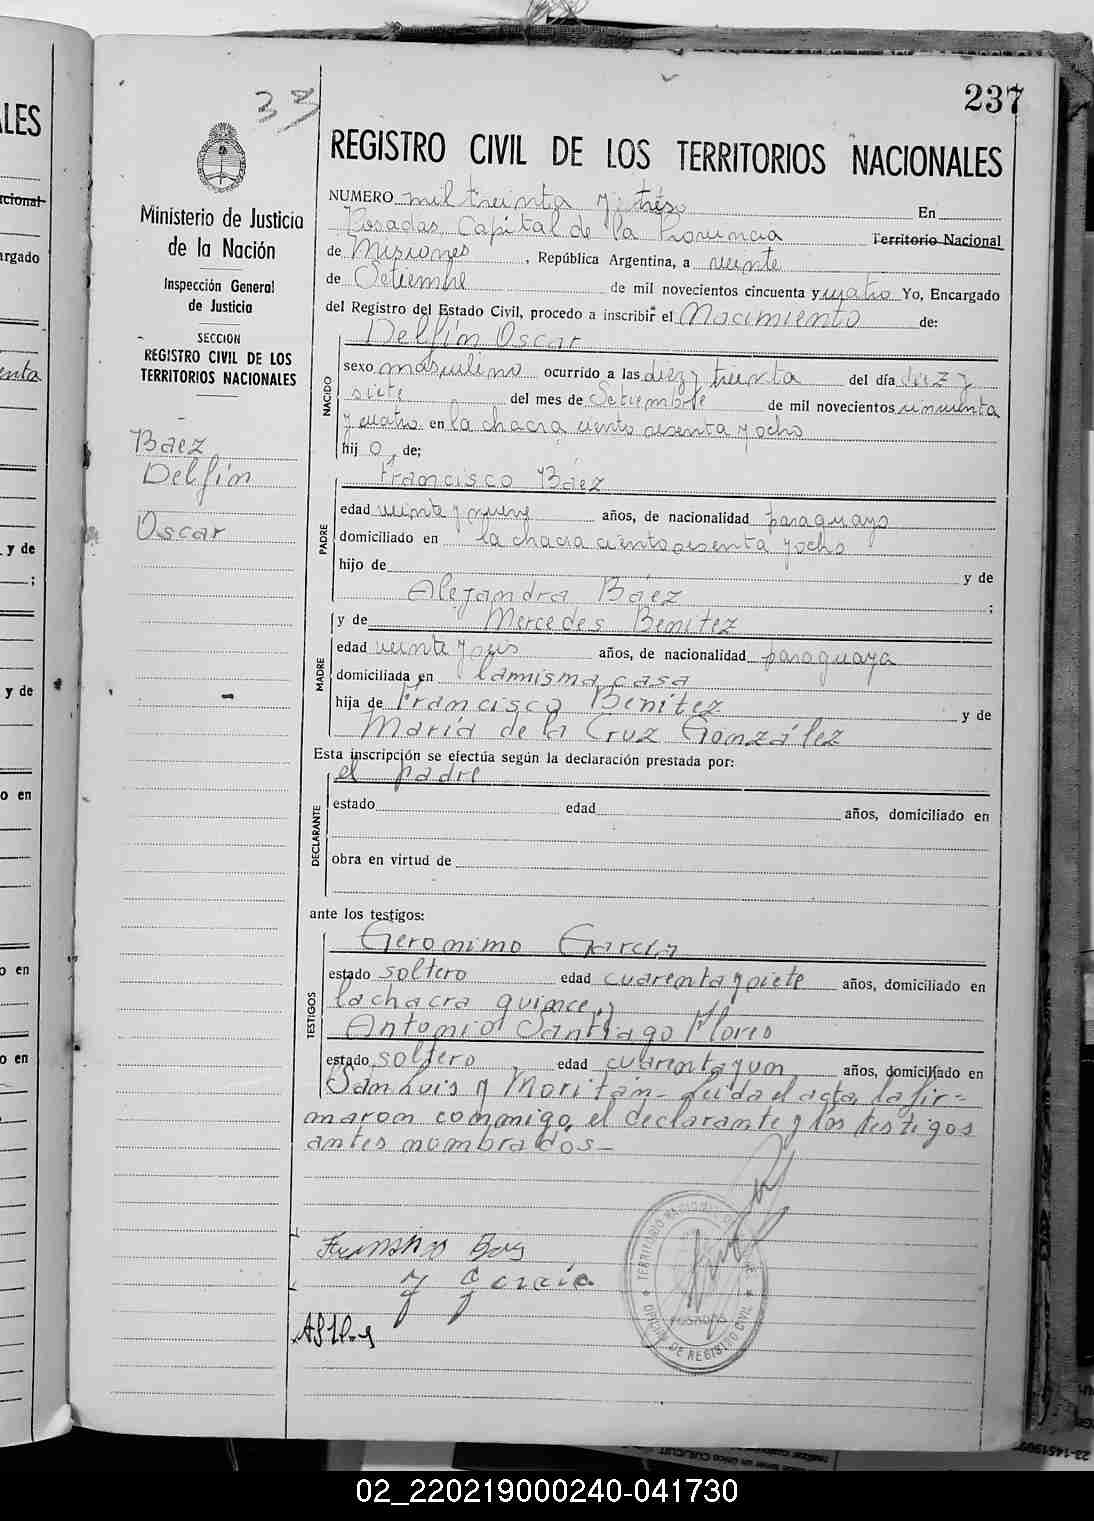 237
33
REGISTRO CIVIL DE LOS TERRITORIOS NACIONALES
Ministerio de Justicia
de la Nación
Inspección General
de Justicia
SECCION
REGISTRO CIVIL DE LOS
TERRITORIOS NACIONALES
Báez
Delfín
Oscar
NUMERO mil treinta y trés En
Posadas Capital de la Provincia Territorio Nacional
de Misiones, República Argentina, a veinte
de Setiembre de mil novecientos cincuenta y cuatro Yo, Encargado
del Registro del Estado Civil, procedo a inscribir el Nacimiento de:
NACIDO
Delfín Oscar
sexo masculino ocurrido a las diez y treinta del día diez y
siete del mes de Setiembre de mil novecientos cincuenta
y cuatro en la chacra ciento sesenta y ocho
hijo, de;
PADRE
Francisco Báez
edad veinte y nueve años, de nacionalidad paraguayo
domiciliado en la chacra ciento sesenta y ocho
hijo de y de
Alejandra Báez ;
MADRE
y de Mercedes Benítez
edad veinte y seis años, de nacionalidad paraguaya
domiciliada en la misma casa
hija de Francisco Benítez y de
María de la Cruz González
Esta inscripción se efectúa según la declaración prestada por:
DECLARANTE
el padre
estado edad años, domiciliado en
obra en virtud de
ante los testigos:
TESTIGOS
Gerónimo García
estado soltero edad cuarenta y siete años, domiciliado en
la chacra quince y
Antonio Santiago Flores
estado soltero edad cuarenta y un años, domiciliado en
San Luis y Moritán - Leída el acta, la fir=
maron conmigo, el declarante y los testigos
antes nombrados -
Francisco Baez
J García
TERRITORIO NACIONAL
POSADAS
OFICINA DE REGISTRO CIVIL
ALES
cional
argado
enta
y de
;
y de
o en
o en
o en
02_220219000240-041730